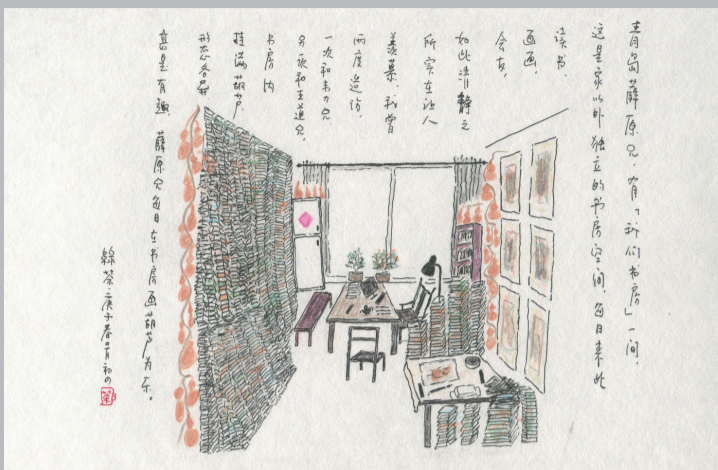 青岛薛原兄，有「我们书房」一间，
这是家以外独立的书房空间，每日来此
读书，
画画，
会友，
如此清静之
所实在让人
羡慕，我曾
两度造访，
一次和韦力兄，
另一次和王道兄，
书房内
挂满葫芦，
形态各异，
甚是有趣，
薛原兄每日在书房画葫芦为乐。
绿茶·庚子春月初四
茶